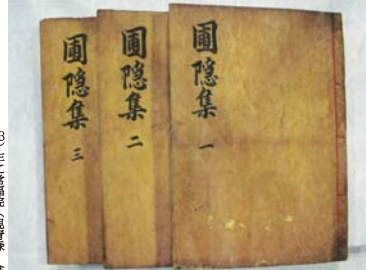 圃隱集 一
圃隱集 二
圃隱集 三